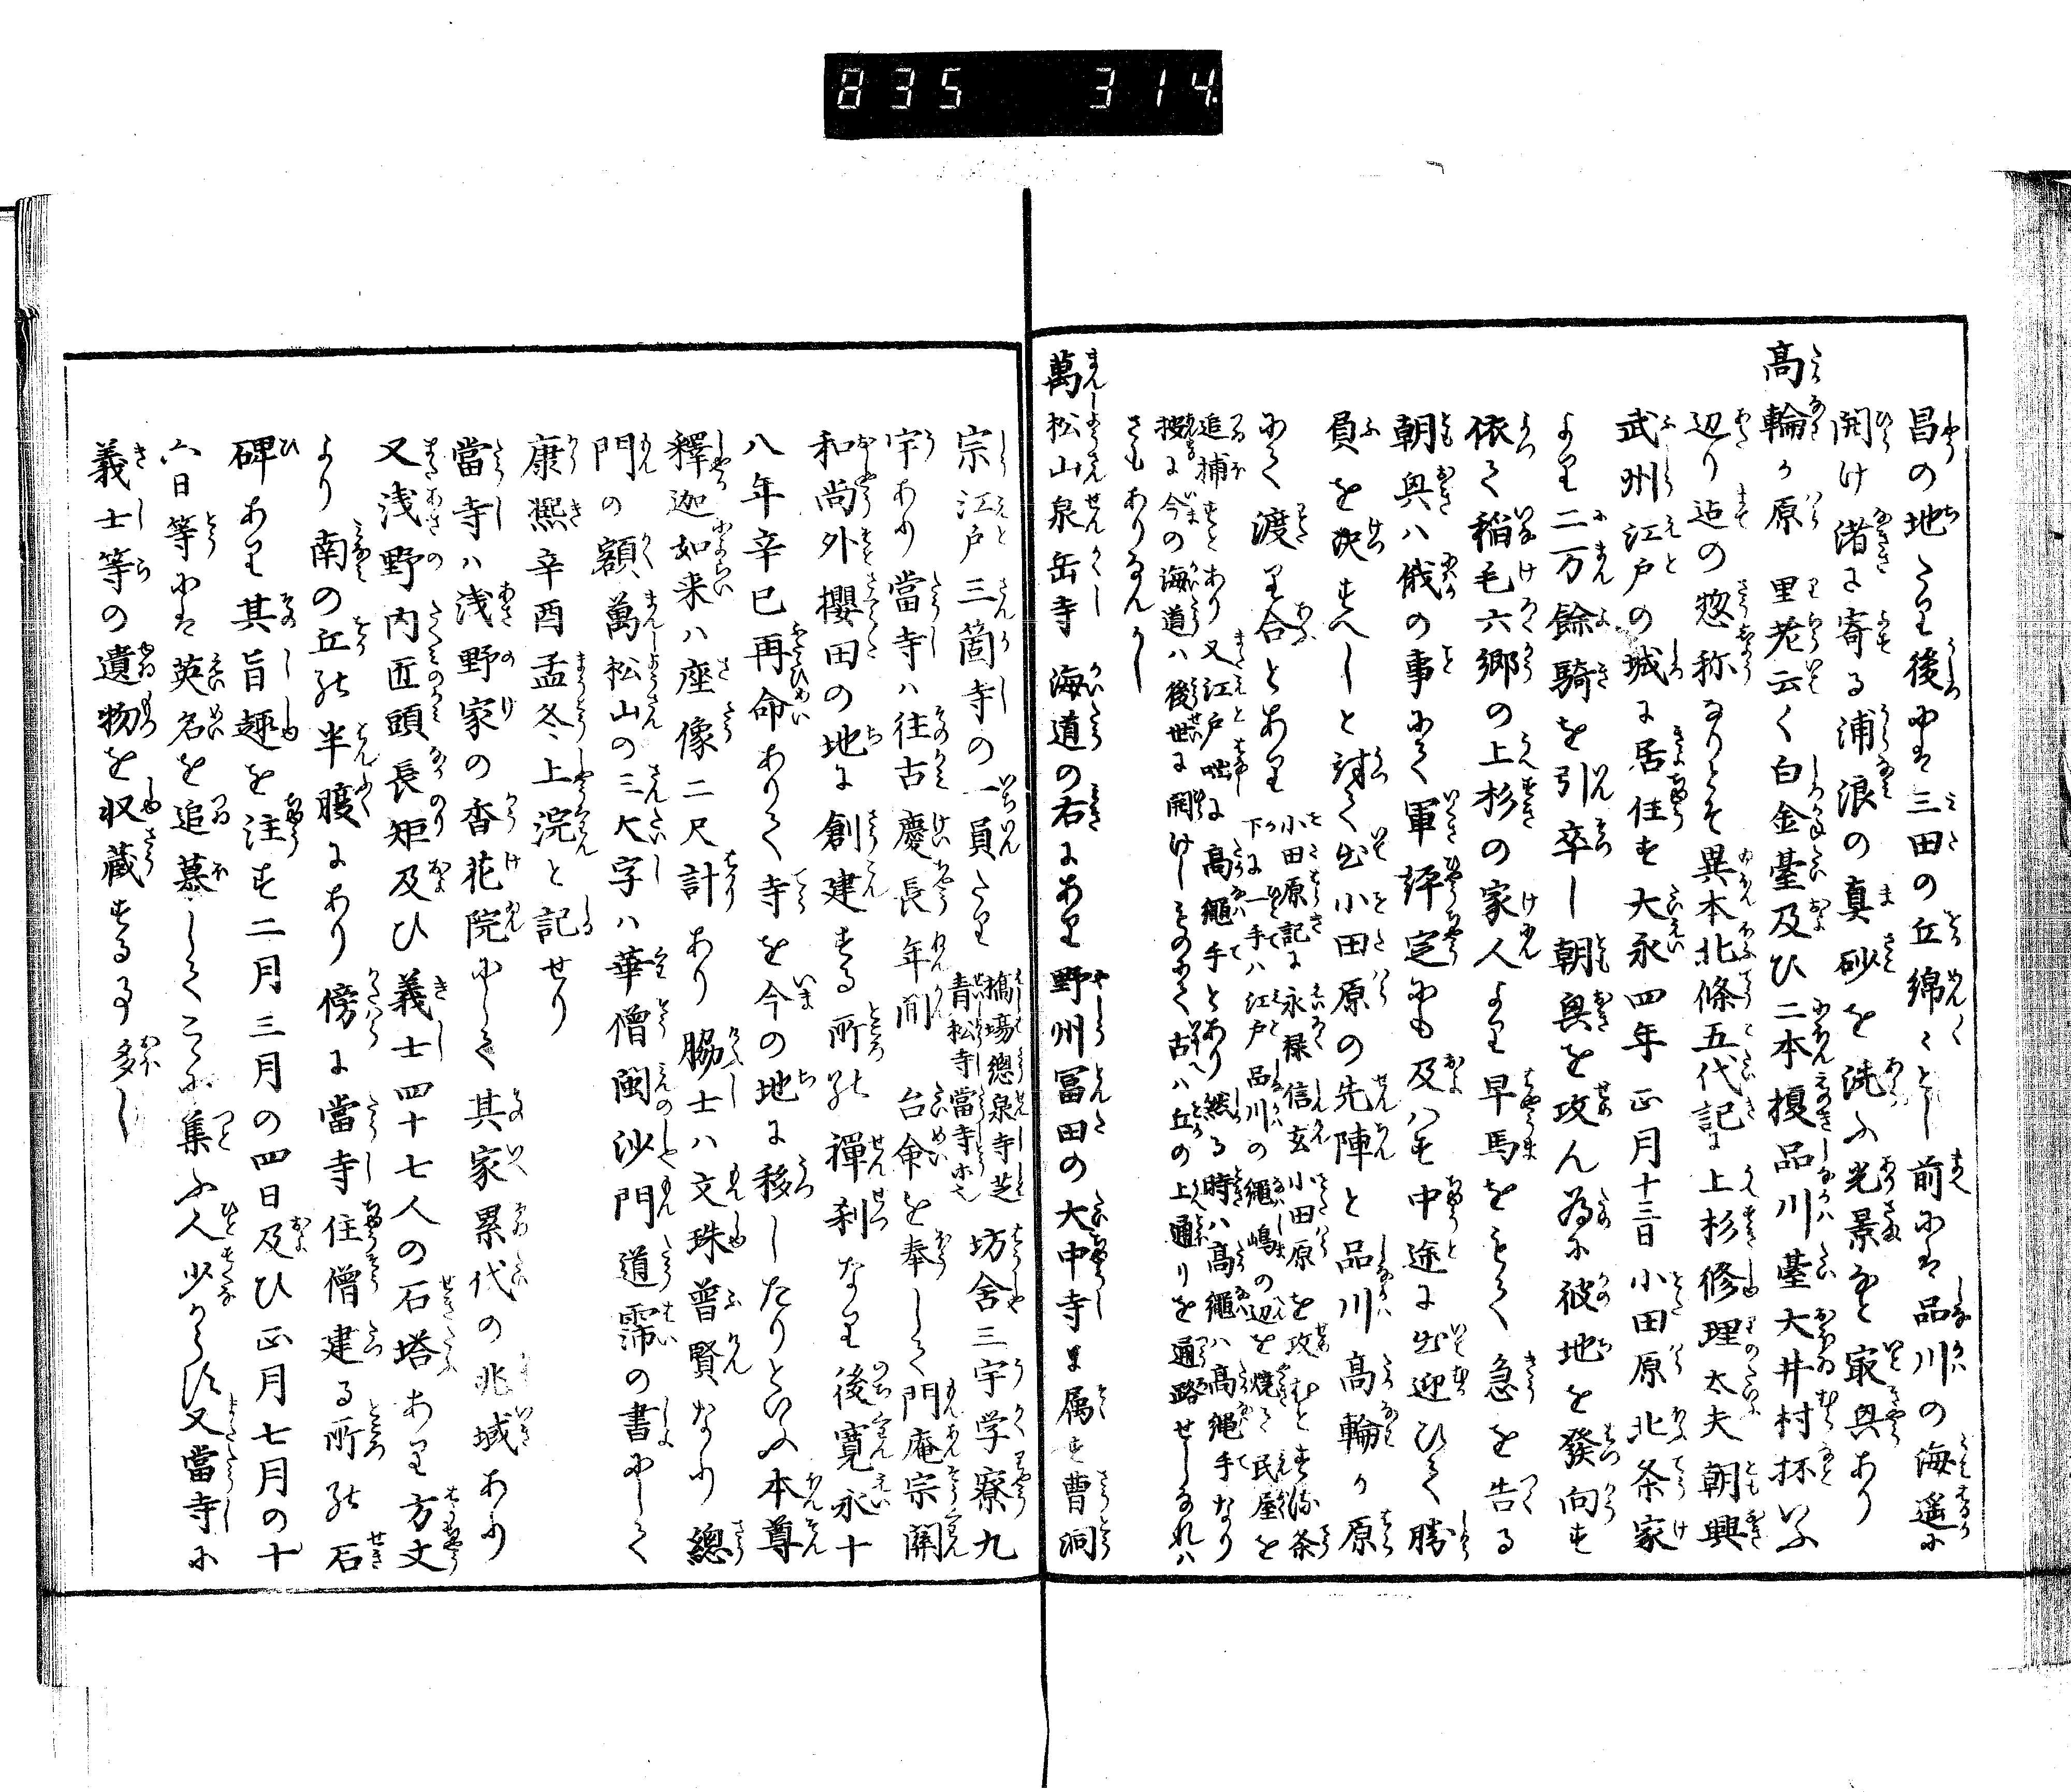 835 314
昌の地たり後には三田の丘綿々とし前には品川の海遥に
開け渚に寄る浦浪の真砂を洗ふ光景など最興あり
高輪か原 里老云く白金臺及ひ二本榎品川臺大井村抔いふ
辺り迄の惣称なりとそ異本北條五代記に上杉修理太夫朝興
武州江戸の城に居住す大永四年正月十三日小田原北条家
より二万餘騎を引卒し朝興を攻ん為に彼地を發向す
依て稲毛六郷の上杉の家人より早馬をもて急を告る
朝興ハ俄の事にて軍評定にも及ハす中途に出迎ひて勝
負を决すへしと討て出小田原の先陣と品川高輪か原
にて渡り合とあり
小田原記に永禄信玄小田原を攻むとする条
下に一手ハ江戸品川の縄嶋の辺を焼て民屋を
追捕すとあり又江戸咄に高縄手とあり然る時ハ高縄ハ高縄手なり
按に今の海道ハ後世に開けしものにて古へハ丘の上通りを通路せしなれハ
さもありなんかし
萬松山泉岳寺 海道の右にあり野州冨田の大中寺に属す曹洞
宗江戸三箇寺の一員たり
橋場總泉寺芝
青松寺當寺等也
坊舎三宇学寮九
宇あり當寺ハ往古慶長年間 台命を奉して門庵宗關
和尚外櫻田の地に創建する所の禪刹なり後寛永十
八年辛巳再命ありて寺を今の地に移したりといふ本尊
釋迦如来ハ座像二尺計あり脇士ハ文珠普賢なり總
門の額萬松山の三大字ハ華僧閩沙門道霈の書にして
康熈辛酉孟冬上浣と記せり
當寺ハ浅野家の香花院にして其家累代の兆域あり
又浅野内匠頭長矩及ひ義士四十七人の石塔あり方丈
より南の丘の半腹にあり傍に當寺住僧建る所の石
碑あり其旨趣を注す二月三月の四日及ひ正月七月の十
六日等には英名を追慕してこゝに集ふ人少からす又當寺に
義士等の遺物を収蔵する事多し